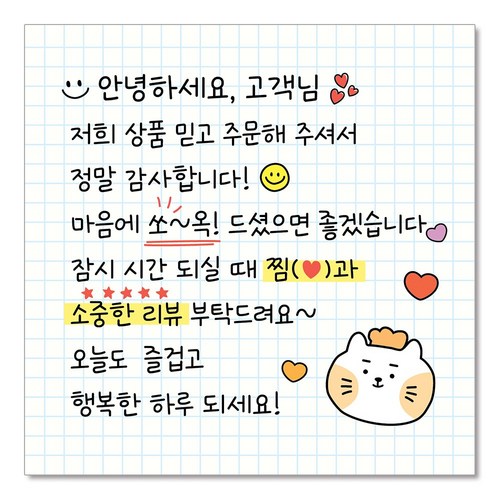 안녕하세요, 고객님
저희 상품 믿고 주문해 주셔서
정말 감사합니다!
마음에 쏘~옥! 드셨으면 좋겠습니다
잠시 시간 되실 때 찜(♥)과
소중한 리뷰 부탁드려요~
오늘도 즐겁고
행복한 하루 되세요!